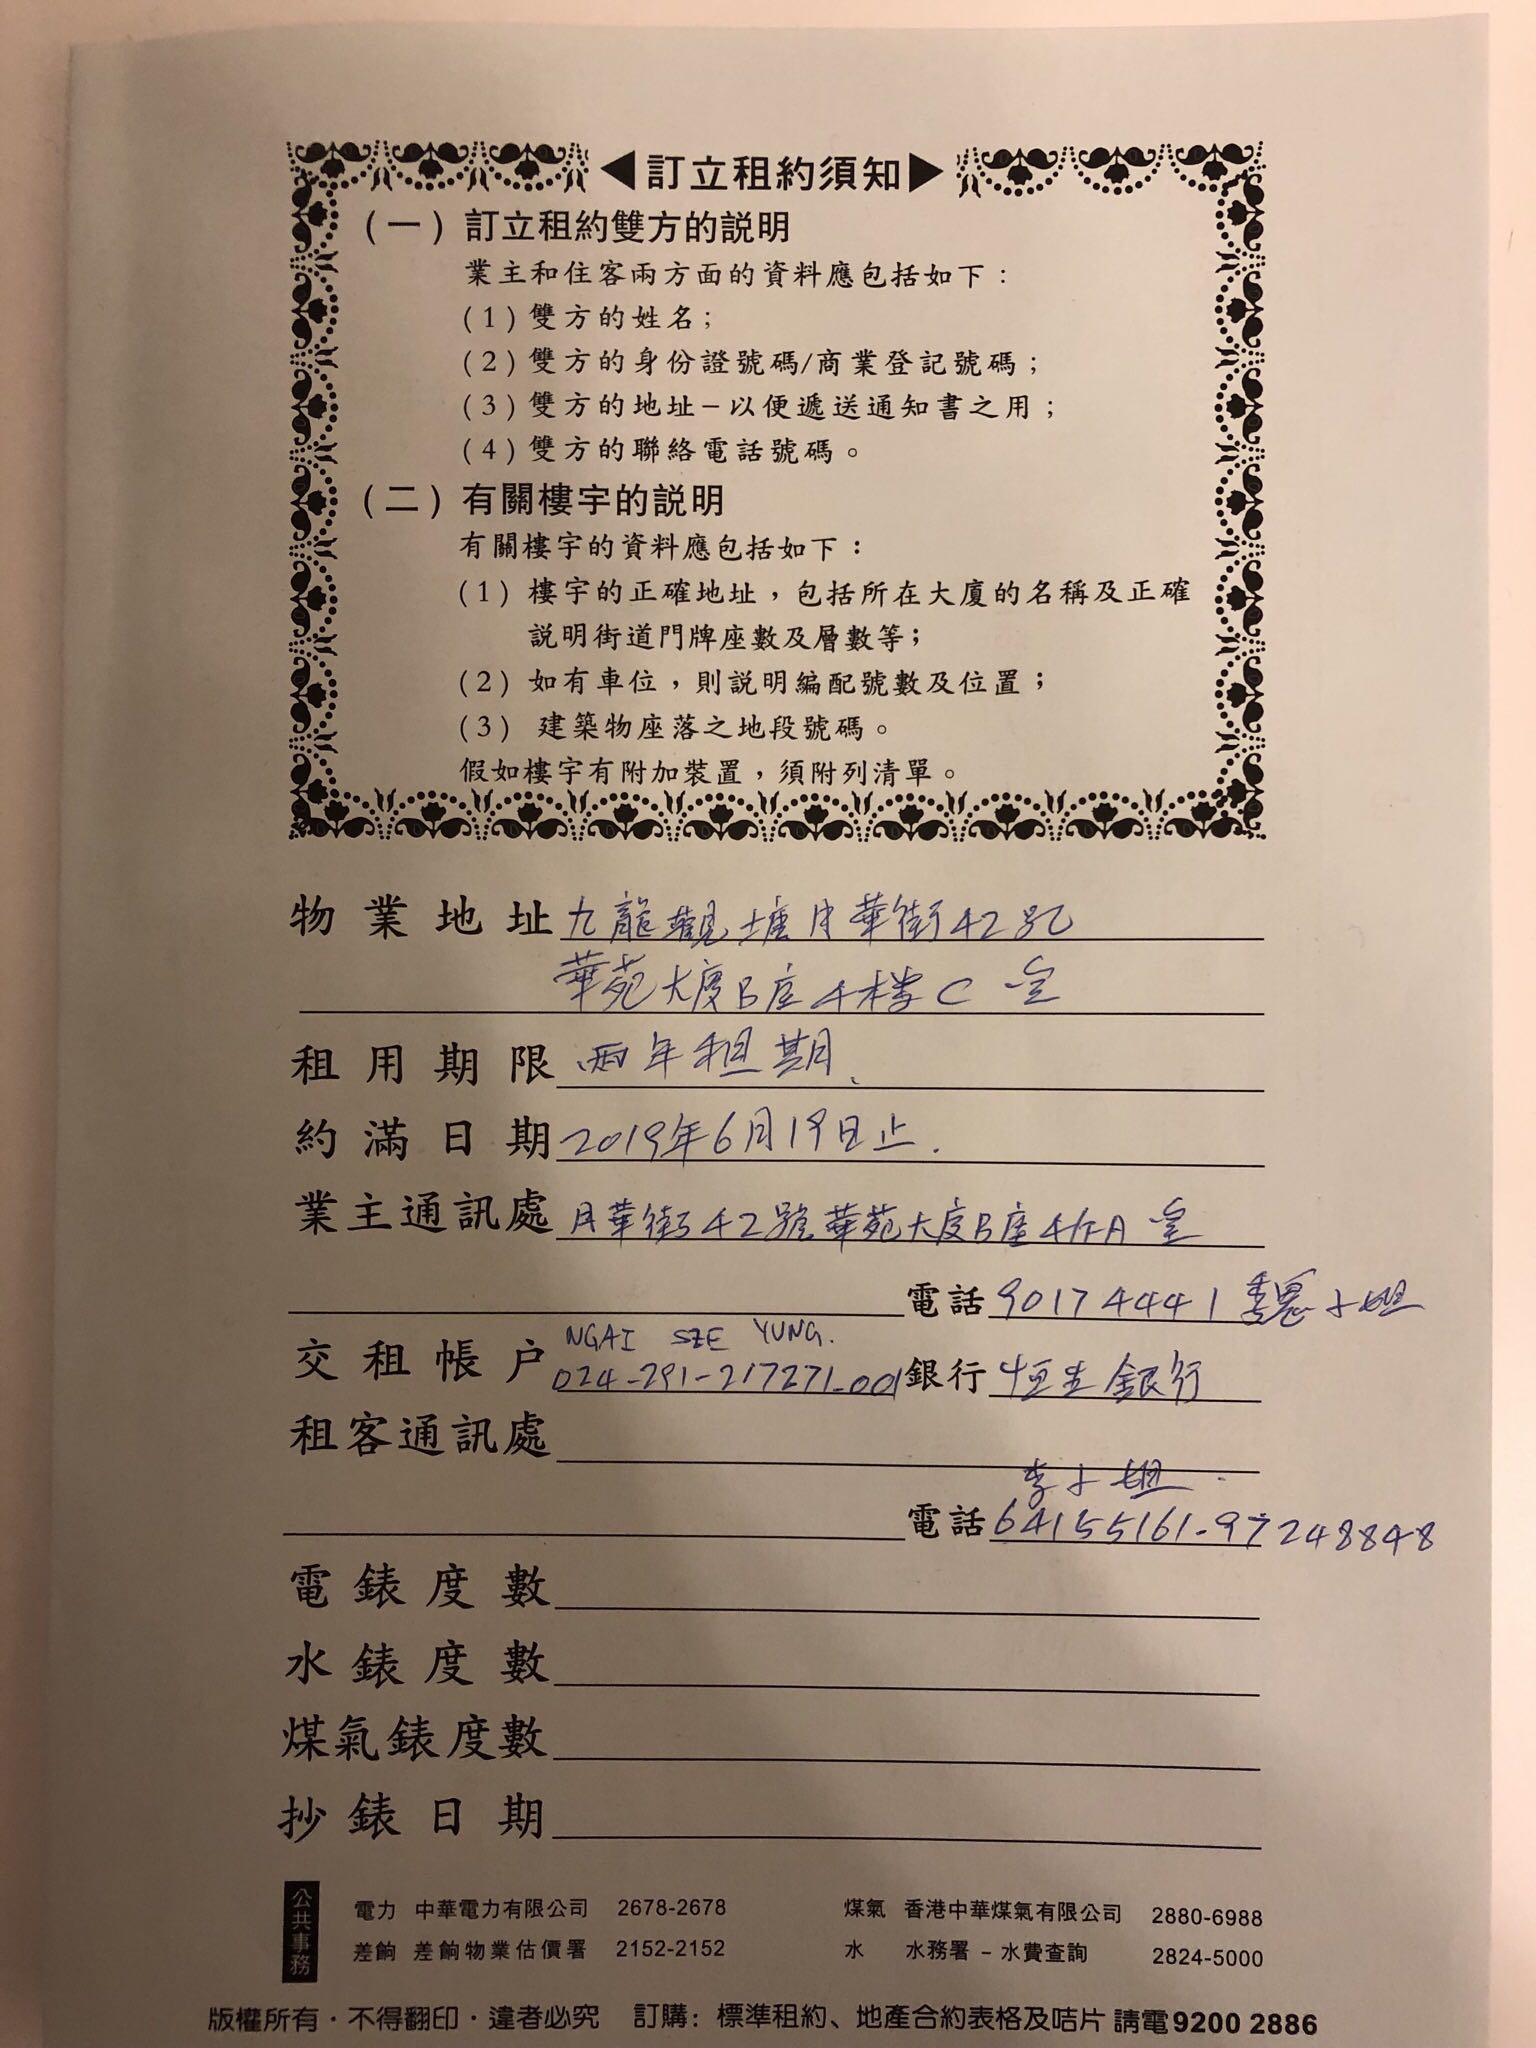 ◀訂立租約須知▶
(一) 訂立租約雙方的説明
業主和住客兩方面的資料應包括如下：
(1) 雙方的姓名；
(2) 雙方的身份證號碼/商業登記號碼；
(3) 雙方的地址－以便遞送通知書之用；
(4) 雙方的聯絡電話號碼。
(二) 有關樓宇的説明
有關樓宇的資料應包括如下：
(1) 樓宇的正確地址，包括所在大廈的名稱及正確
説明街道門牌座數及層數等；
(2) 如有車位，則説明編配號數及位置；
(3) 建築物座落之地段號碼。
假如樓宇有附加裝置，須附列清單。
物業地址 九龍觀塘月華街42號
華苑大廈B座4樓C室
租用期限 兩年租期.
約滿日期 2019年6月19日止.
業主通訊處 月華街42號華苑大廈B座4/F A室
電話 90174441 魏小姐
NGAI SZE YUNG.
交租帳户 024-291-217271-001 銀行 恒生銀行
租客通訊處
李小姐.
電話 64155161-97248848
電錶度數
水錶度數
煤氣錶度數
抄錶日期
公共事務
電力 中華電力有限公司 2678-2678 煤氣 香港中華煤氣有限公司 2880-6988
差餉 差餉物業估價署 2152-2152 水 水務署－水費查詢 2824-5000
版權所有・不得翻印・違者必究 訂購：標準租約、地產合約表格及咭片 請電9200 2886